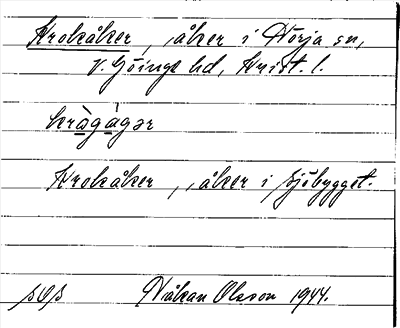 Krokåker, åker i Norja sn,
V. Göinge hd, Krist. l.
krågågər
Krokåker, åker i sjöbygget.
Håkan Olsson 1944.